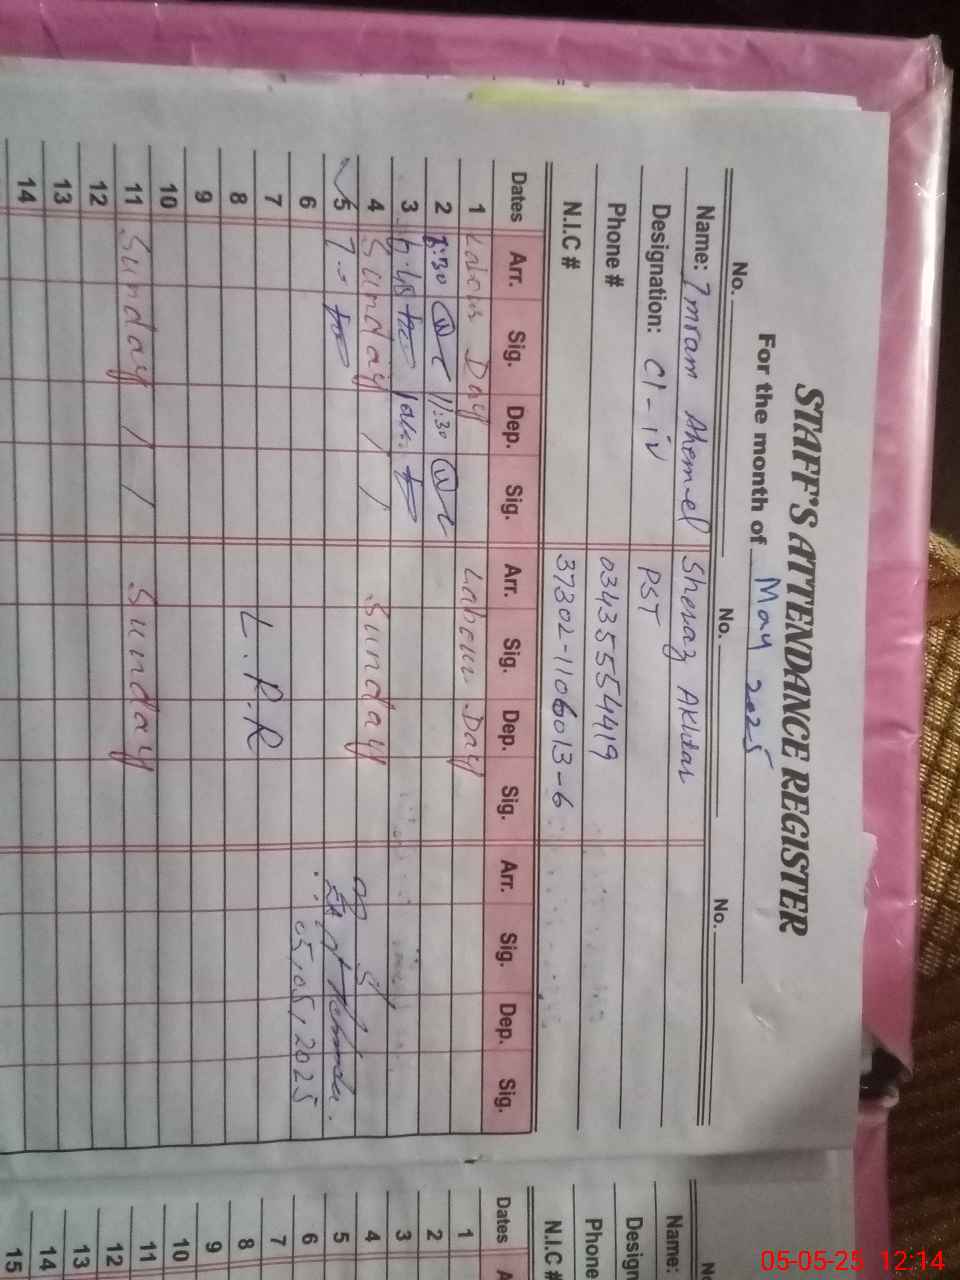 STAFF'S ATTENDANCE REGISTER
For the month of May 2025
No. No. No.
Name: Imran Ahemed Sheraz Akhtar
Designation: Cl-iv PST
Phone # 03435554419
N.I.C # 37302-1106013-6
Dates Arr. Sig. Dep. Sig. Arr. Sig. Dep. Sig. Arr. Sig. Dep. Sig.
1 Labour Day Labour Day
2 :30 11:30
3
4 Sunday / / Sunday
5 7--
6 05/05/2025
7
8 L.R.R
9
10
11 Sunday / / Sunday
12
13
14
No
Name:
Design
Phone
N.I.C #
Dates A
1
2
3
4
5
6
7
8
9
10
11
12
13
14
15
05-05-25 12:14